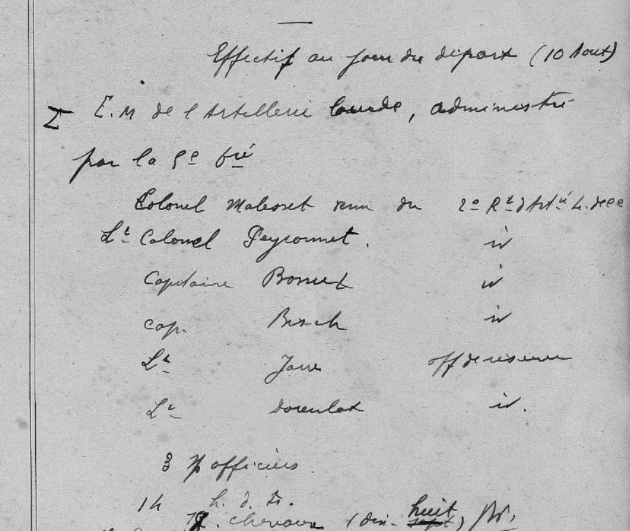 Effectif au jour du départ (10 Aout)
I E.M de l'Artillerie lourde, administré
par la 5e Bie
Colonel Maloset venu du 2e Rt d'Artie L.
Lt Colonel Peyronnet. id
Capitaine Bonnet id
cap. Bisch id
Lt off de réserve
Lt id.
3 S/officiers
14 h. d. tr.
chevaux (dix- huit